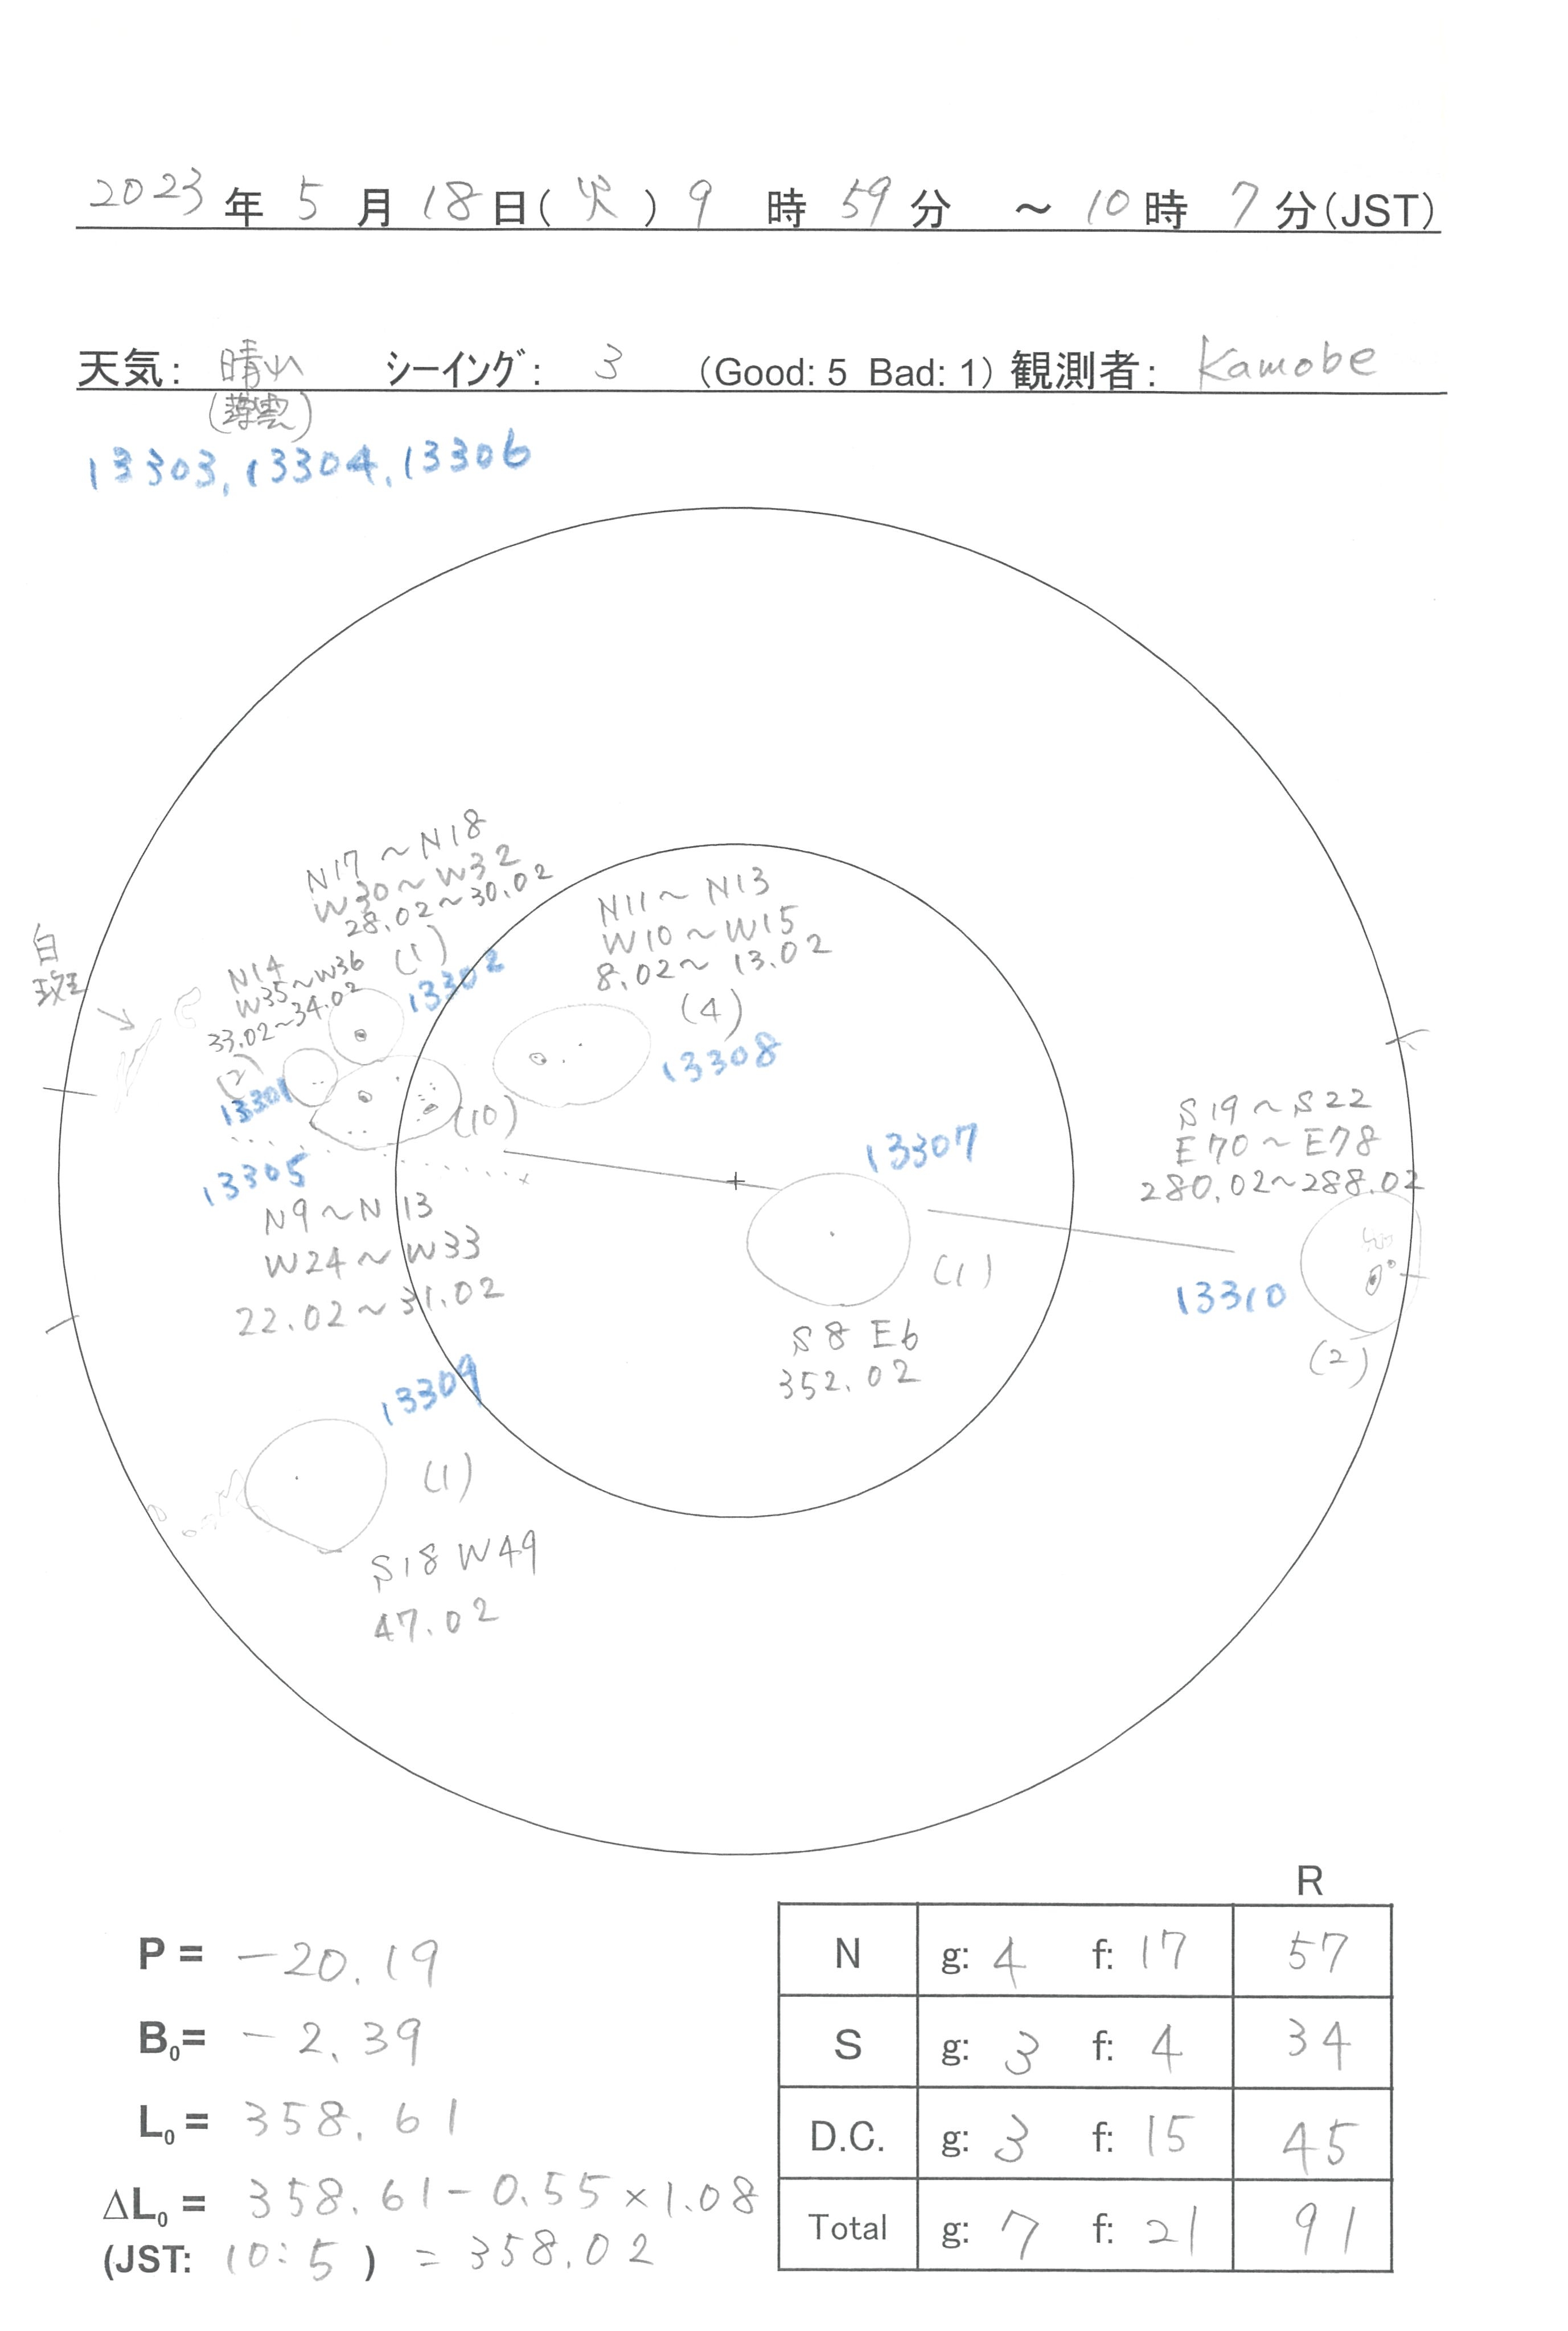 2023年 5月 18日(火) 9時 59分 ～ 10時 7分(JST)
天気: 晴れ シーイング: 3 (Good: 5 Bad: 1) 観測者: Kamobe
(薄雲)
13303, 13304, 13306
N17～N18
W30～W32
28.02～30.02
(1)
13302
N11～N13
W10～W15
8.02～13.02
(4)
13308
白
斑
N14
W35～W36
33.02～34.02
(2)
13301
(10)
13305
N9～N13
W24～W33
22.02～31.02
13307
(1)
S8 E6
352.02
S19～S22
E70～E78
280.02～288.02
13310
(2)
13309
(1)
S18 W49
47.02
P = -20.19
B0= -2.39
L0= 358.61
ΔL0 = 358.61-0.55×1.08
(JST: 10:5) = 358.02
R
N g: 4 f: 17 57
S g: 3 f: 4 34
D.C. g: 3 f: 15 45
Total g: 7 f: 21 91